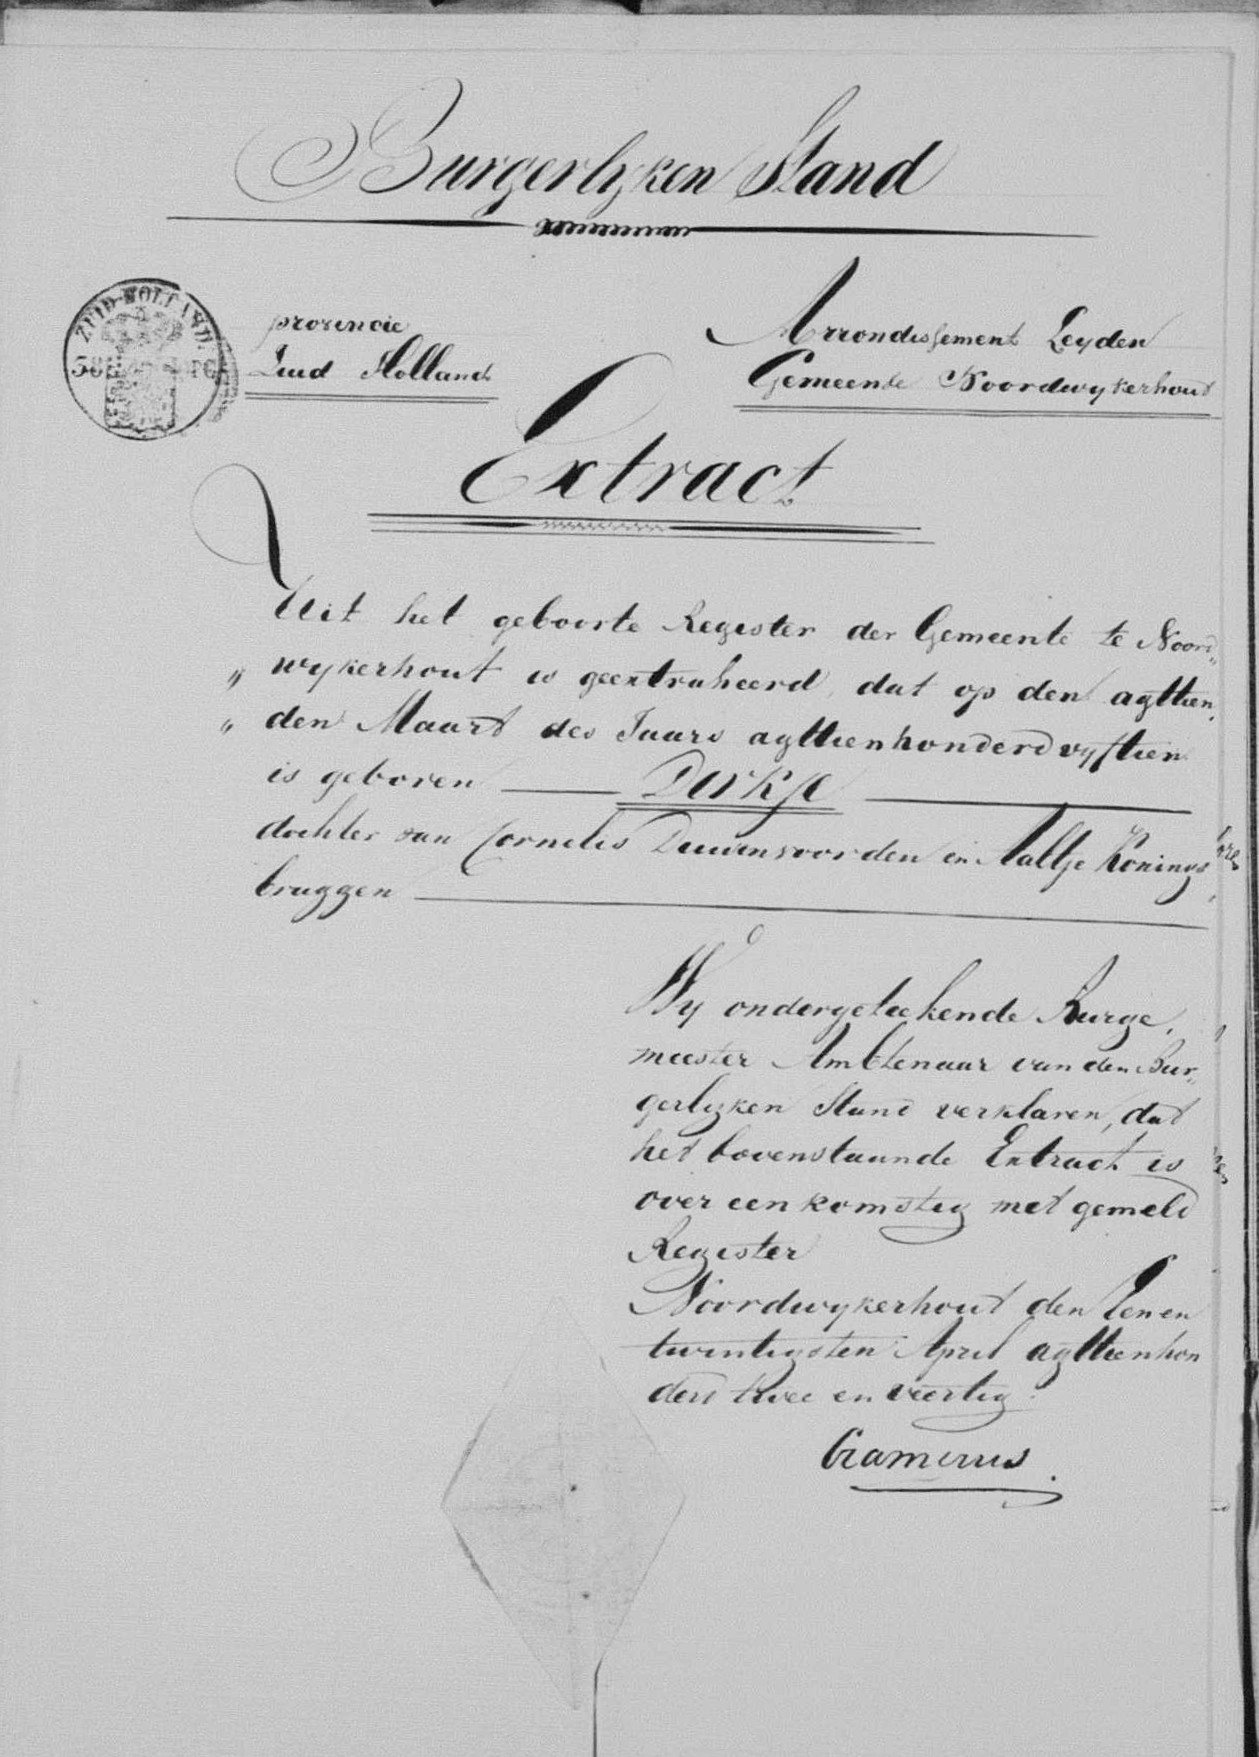 Burgerlyken Stand
ZUID-HOLLAND
provincie
Zuid Holland
Arrondissement Leyden
Gemeente Noordwykerhout
Extract
Uit het geboorte Register der Gemeente te Noord„
„ wykerhout is geextraheerd, dat op den agttien„
„ den Maart des Jaars agttienhonderd vyftien
is geboren Dirkje
dochter van Cornelis Duivenvoorden en Aaltje Konings
bruggen
Wy ondergeteekende Burge„
meester Ambtenaar van den Bur„
gerlyken Stand verklaren, dat
het bovenstaande Extract is
over een komstig met gemeld
Register
Noordwykerhout den Eenen
twintigsten April agttienhon
dert twee en veertig.